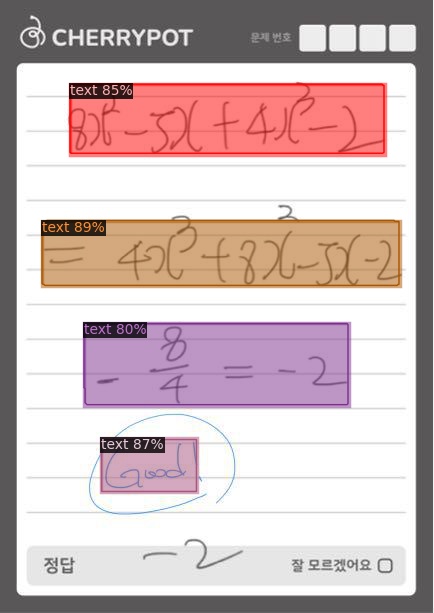 CHERRYPOT 문제 번호
text 85%
8x² - 5x + 4x³ - 2
text 89%
= 4x³ + 8x² - 5x - 2
text 80%
- 8/4 = -2
text 87%
Good!
정답 -2 잘 모르겠어요